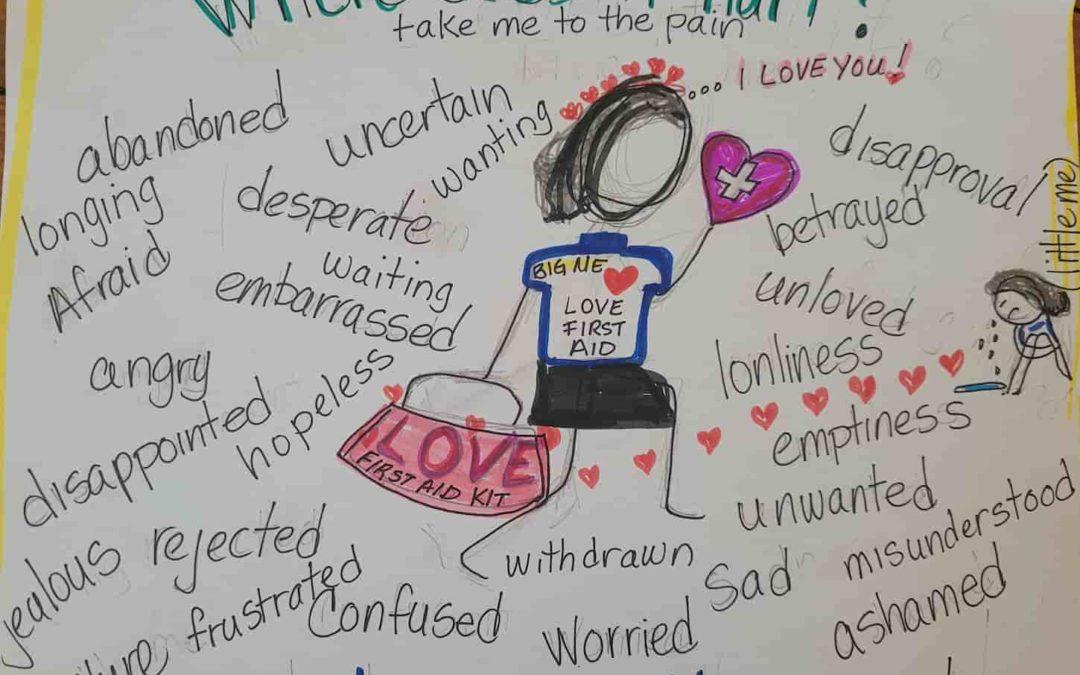 take me to the pain
... I LOVE YOU!
abandoned
uncertain
wanting
disapproval
little me
longing
desperate
betrayed
Afraid
waiting
BIG ME
unloved
embarrassed
LOVE
FIRST
AID
lonliness
angry
hopeless
disappointed
emptiness
LOVE
FIRST AID KIT
unwanted
misunderstood
jealous
rejected
withdrawn
Sad
frustrated
Confused
Worried
ashamed